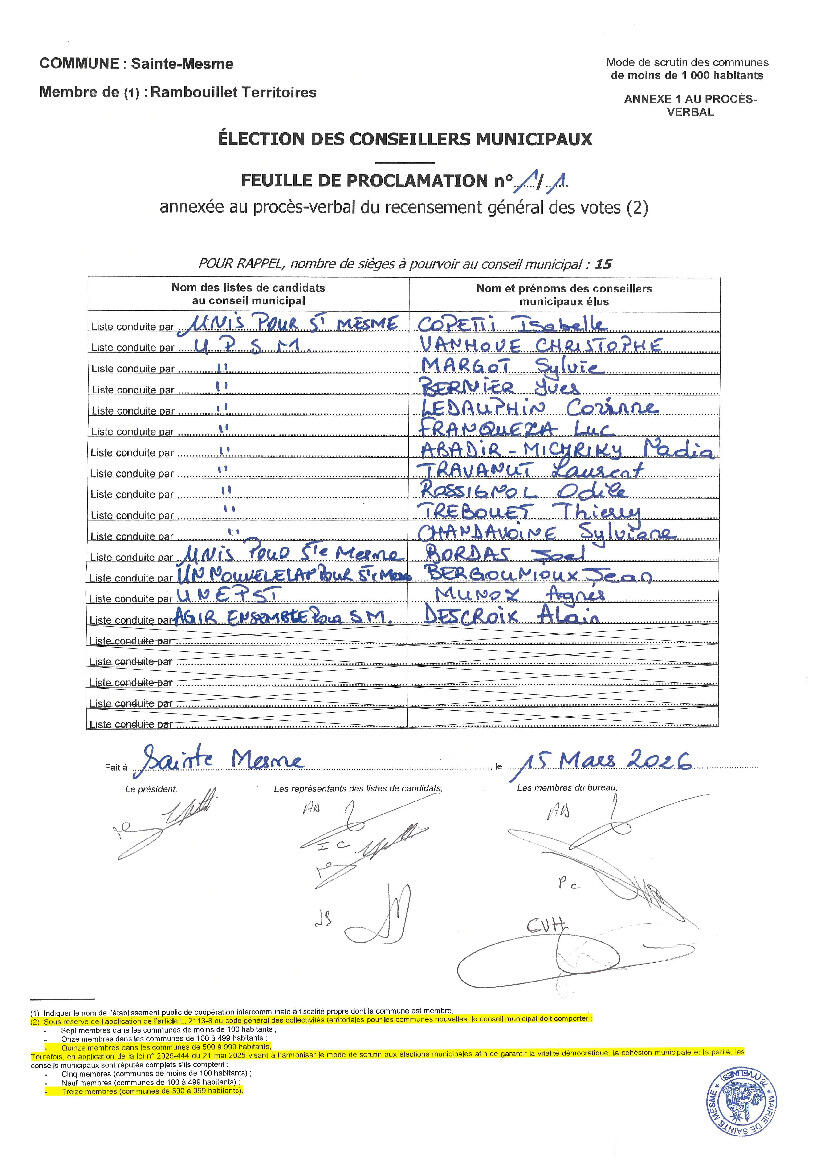 COMMUNE : Sainte-Mesme
Mode de scrutin des communes
de moins de 1 000 habitants
Membre de (1) : Rambouillet Territoires
ANNEXE 1 AU PROCÈS-
VERBAL
ÉLECTION DES CONSEILLERS MUNICIPAUX
FEUILLE DE PROCLAMATION n° 1/1
annexée au procès-verbal du recensement général des votes (2)
POUR RAPPEL, nombre de sièges à pourvoir au conseil municipal : 15
Nom des listes de candidats
au conseil municipal
Nom et prénoms des conseillers
municipaux élus
Liste conduite par UNIS POUR St MESME COPETTI Isabelle
Liste conduite par U P S M. VANHOVE CHRISTOPHE
Liste conduite par " MARGOT Sylvie
Liste conduite par " BERNIER Yves
Liste conduite par " LEDAUPHIN Corinne
Liste conduite par " FRANQUEZA Luc
Liste conduite par " ABADIR-MICHRIKY Nadia
Liste conduite par " TRAVANUT Laurent
Liste conduite par " ROSSIGNOL Odile
Liste conduite par " TREBOUET Thierry
Liste conduite par " CHANDAVOINE Sylviane
Liste conduite par UNIS POUR Ste Mesme BORDAS Joel
Liste conduite par UN NOUVEL ELAN Pour Ste Mesme BERGOUNIOUX Jean
Liste conduite par U N E P S T MUNOZ Agnes
Liste conduite par AGIR ENSEMBLE Pour S.M. DESCROIX Alain
Liste conduite par
Liste conduite par
Liste conduite par
Liste conduite par
Liste conduite par
Fait à Sainte Mesme , le 15 Mars 2026
Le président, Les représentants des listes de candidats, Les membres du bureau,
AD AD
I C
P c
JS
CVH
(1) Indiquer le nom de l'établissement public de coopération intercommunale à fiscalité propre dont la commune est membre.
(2) Sous réserve de l'application de l'article L. 2113-8 du code général des collectivités territoriales pour les communes nouvelles, le conseil municipal doit comporter :
- Sept membres dans les communes de moins de 100 habitants ;
- Onze membres dans les communes de 100 à 499 habitants ;
- Quinze membres dans les communes de 500 à 999 habitants.
Toutefois, en application de la loi n° 2025-444 du 21 mai 2025 visant à harmoniser le mode de scrutin aux élections municipales afin de garantir la vitalité démocratique, la cohésion municipale et la parité, les
conseils municipaux sont réputés complets s'ils comptent :
- Cinq membres (communes de moins de 100 habitants) ;
- Neuf membres (communes de 100 à 499 habitants) ;
- Treize membres (communes de 500 à 999 habitants).
MAIRIE DE SAINTE MESME